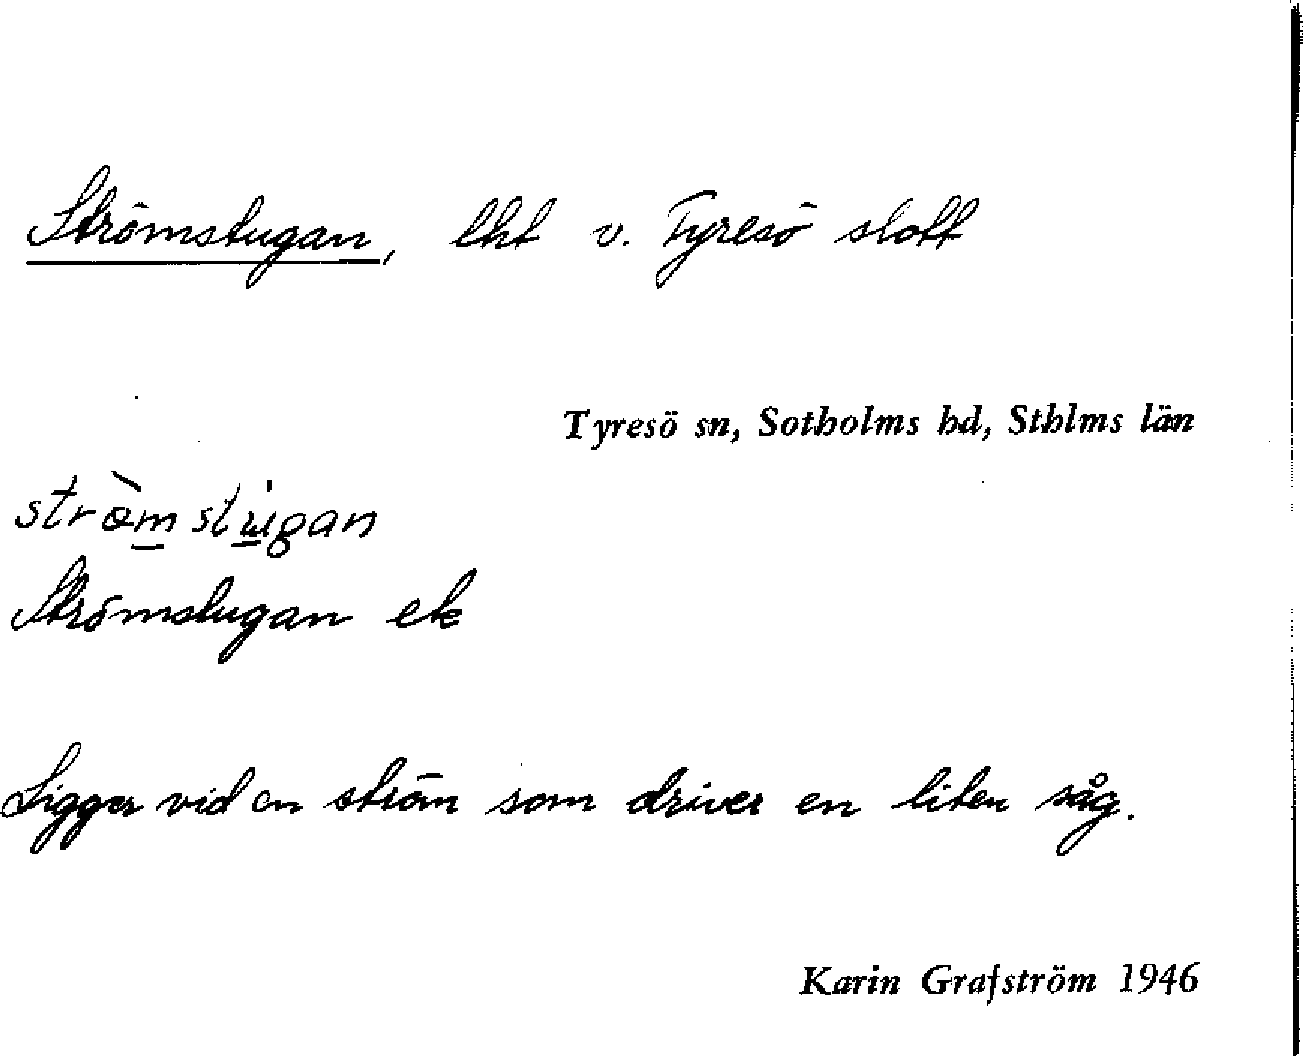 Strömstugan, lht v. Tyresö slott
Tyresö sn, Sotholms hd, Sthlms län
strö̀mstu̇gan
Strömstugan ek
Ligger vid en ström som driver en liten såg.
Karin Grafström 1946